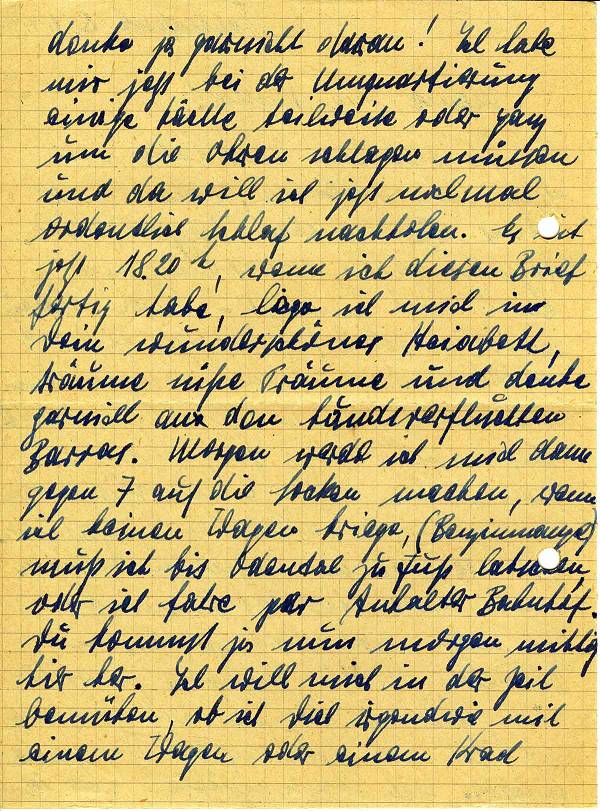 denke ja garnicht daran! Ich habe
mir jetzt bei der Umquartierung
einige Nächte teilweise oder ganz
um die Ohren schlagen müssen
und da will ich jetzt nochmal
ordentlich Schlaf nachholen. Es ist
jetzt 18.20 h, wenn ich diesen Brief
fertig habe, lege ich mich in
Dein wunderschönes Heiabett,
träume süße Träume und denke
garnicht an den hundsverfluchten
Barras. Morgen werde ich mich dann
gegen 7 auf die Socken machen, wenn
ich keinen Wagen kriege, (Benzinmangel)
muß ich bis Odental zu Fuß latschen,
oder ich fahre per Anhalter Bahnhof.
Du kommst ja nun morgen mittag
hier her. Ich will mich in der Zeit
bemühen, ob ich Dich irgendwie mit
einem Wagen oder einem Krad